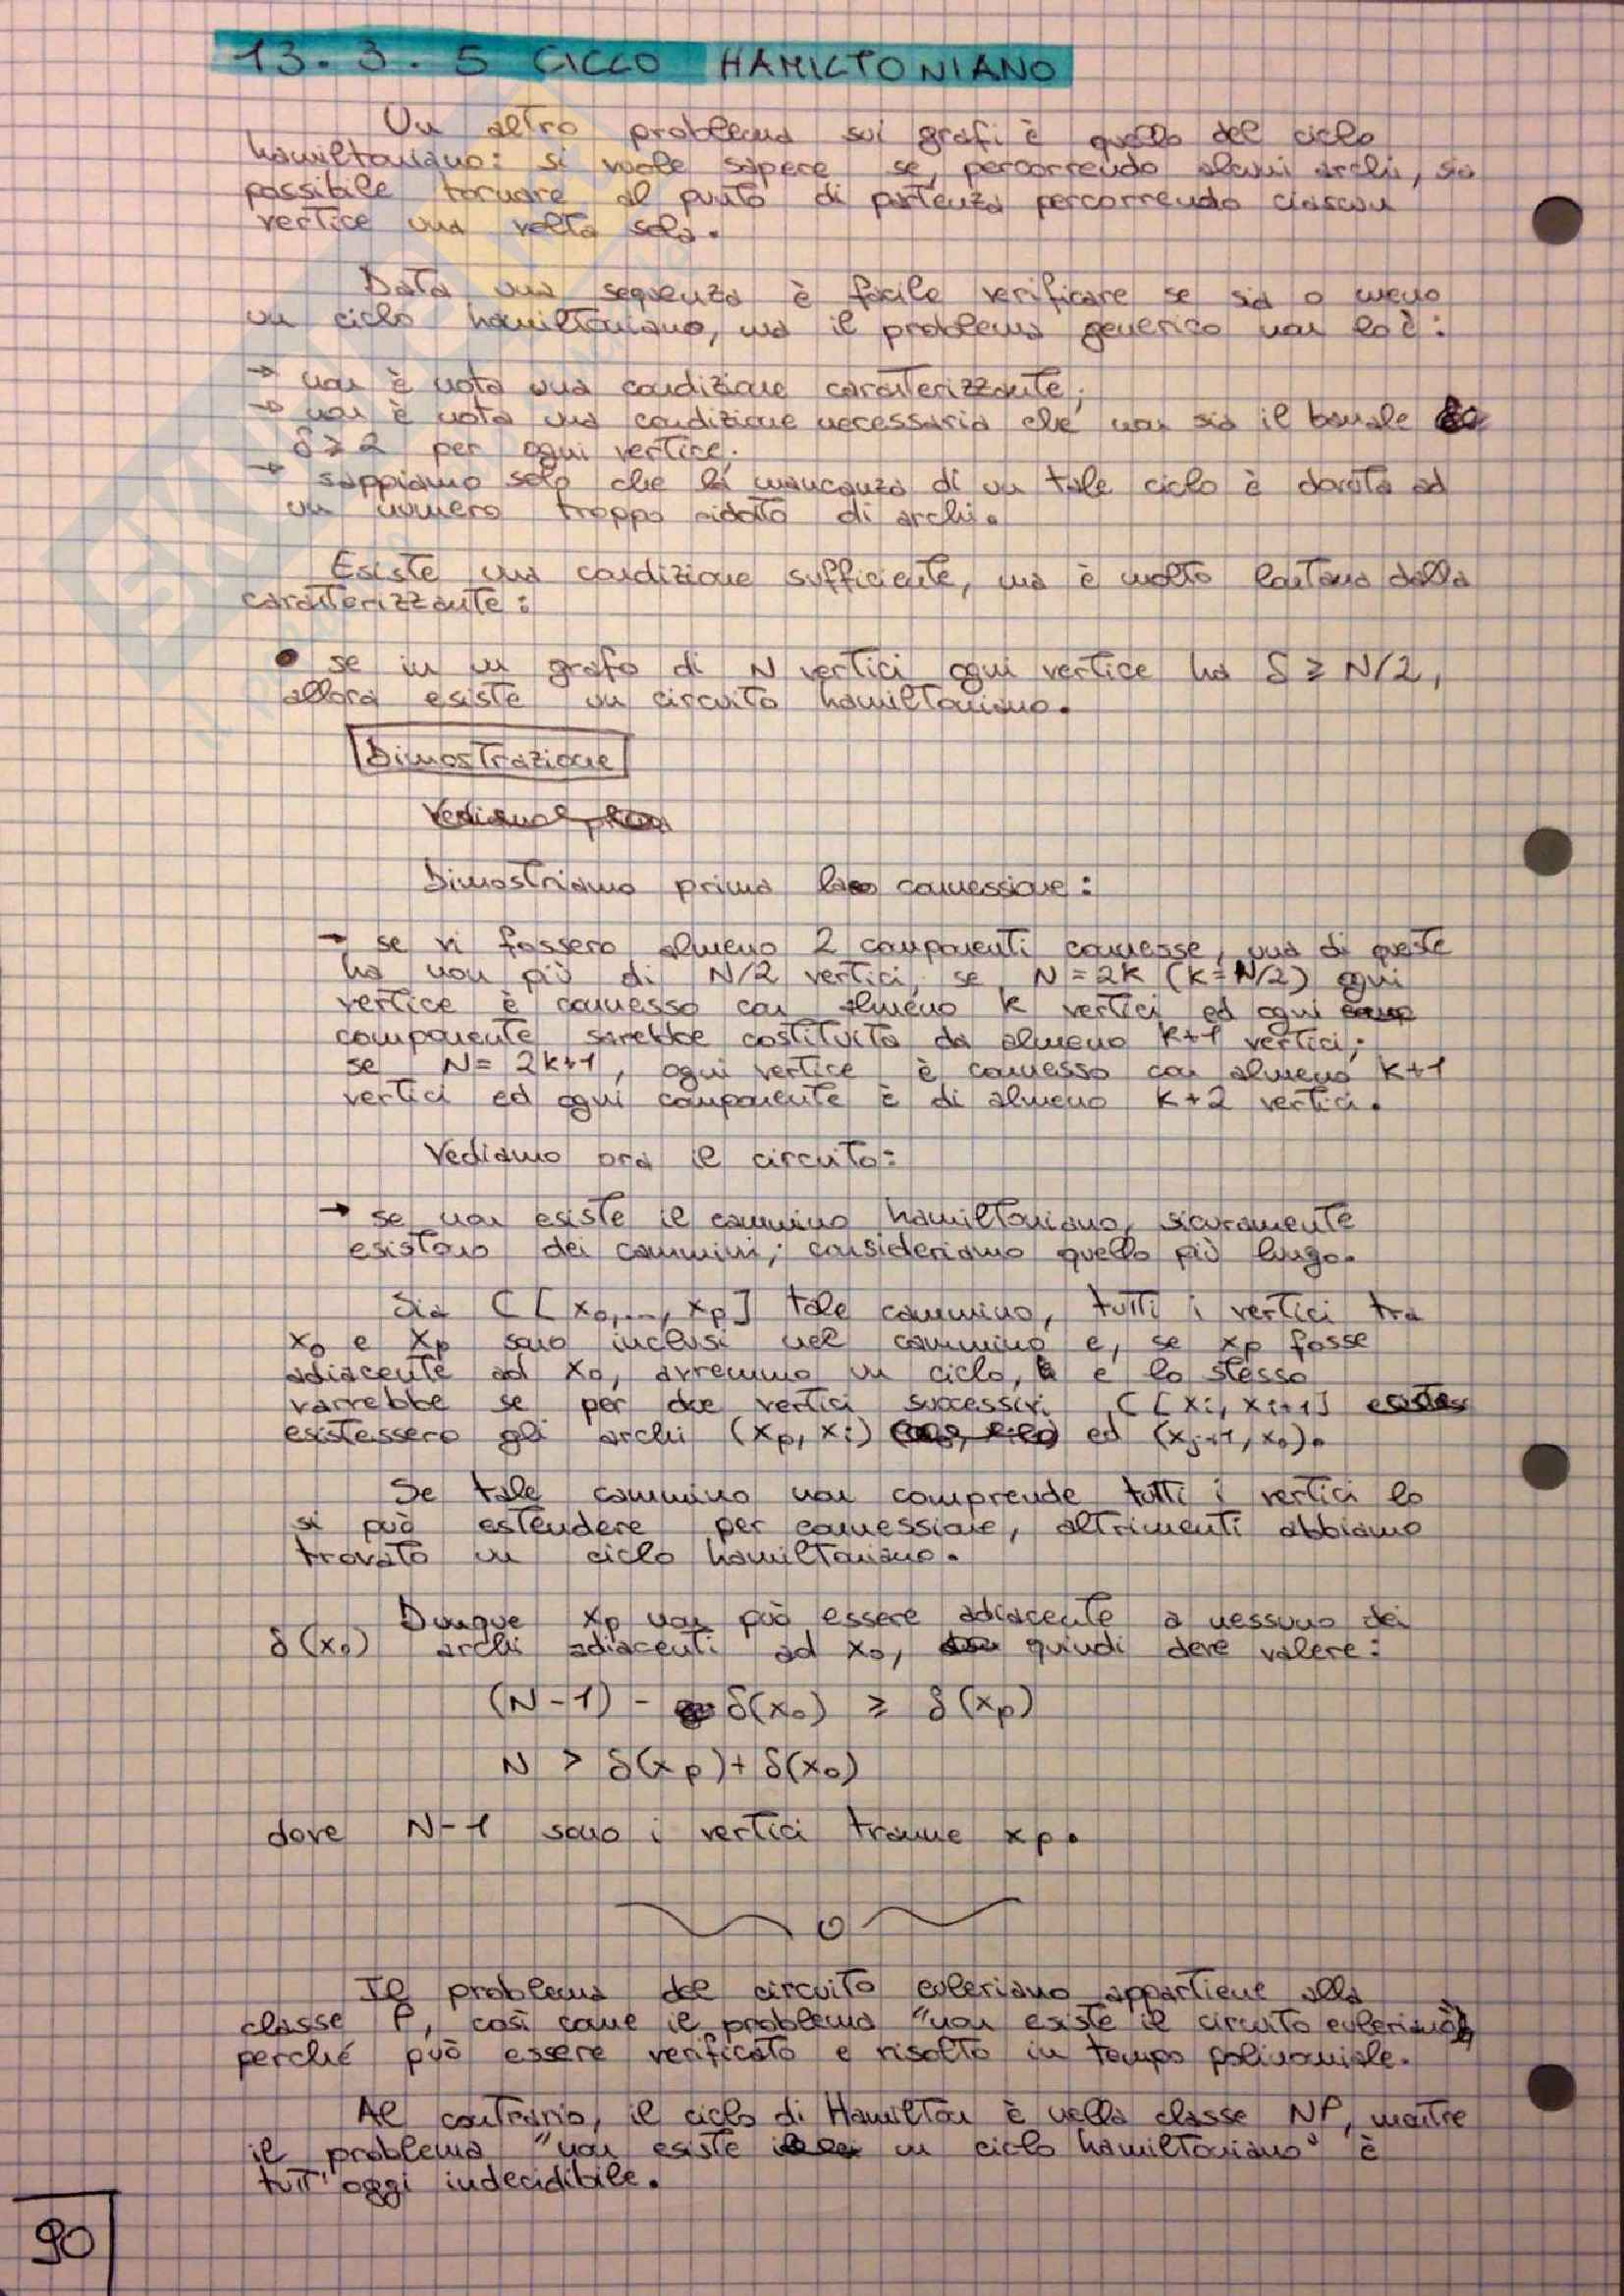 13.3.5 CICLO HAMILTONIANO
Un altro problema sui grafi è quello del ciclo
hamiltoniano: si vuole sapere se, percorrendo alcuni archi, sia
possibile tornare al punto di partenza percorrendo ciascun
vertice una volta sola.
Data una sequenza è facile verificare se sia o meno
un ciclo hamiltoniano, ma il problema generico non lo è:
→ non è nota una condizione caratterizzante;
→ non è nota una condizione necessaria che non sia il banale
δ ≥ 2 per ogni vertice;
→ sappiamo solo che la mancanza di un tale ciclo è dovuta ad
un numero troppo ridotto di archi.
Esiste una condizione sufficiente, ma è molto lontana dalla
caratterizzante:
• se in un grafo di N vertici ogni vertice ha δ ≥ N/2,
allora esiste un circuito hamiltoniano.
Dimostrazione
Dimostriamo prima la connessione:
→ se vi fossero almeno 2 componenti connesse, una di queste
ha non più di N/2 vertici; se N = 2k (k = N/2) ogni
vertice è connesso con almeno k vertici ed ogni
componente sarebbe costituita da almeno k+1 vertici;
se N = 2k+1, ogni vertice è connesso con almeno k+1
vertici ed ogni componente è di almeno k+2 vertici.
Vediamo ora il circuito:
→ se non esiste il cammino hamiltoniano, sicuramente
esistono dei cammini; consideriamo quello più lungo.
Sia C[x₀,...,xp] tale cammino, tutti i vertici tra
x₀ e xp sono inclusi nel cammino e, se xp fosse
adiacente ad x₀, avremmo un ciclo, e lo stesso
varrebbe se per due vertici successivi C[xi, xi+1]
esistessero gli archi (xp, xi) ed (xj+1, x₀).
Se tale cammino non comprende tutti i vertici lo
si può estendere per connessione, altrimenti abbiamo
trovato un ciclo hamiltoniano.
Dunque xp non può essere adiacente a nessuno dei
δ(x₀) archi adiacenti ad x₀, quindi deve valere:
(N-1) - δ(x₀) ≥ δ(xp)
N > δ(xp) + δ(x₀)
dove N-1 sono i vertici tranne xp.
Il problema del circuito euleriano appartiene alla
classe P, così come il problema "non esiste il circuito euleriano"
perché può essere verificato e risolto in tempo polinomiale.
Al contrario, il ciclo di Hamilton è nella classe NP, mentre
il problema "non esiste un ciclo hamiltoniano" è
tutt'oggi indecidibile.
90